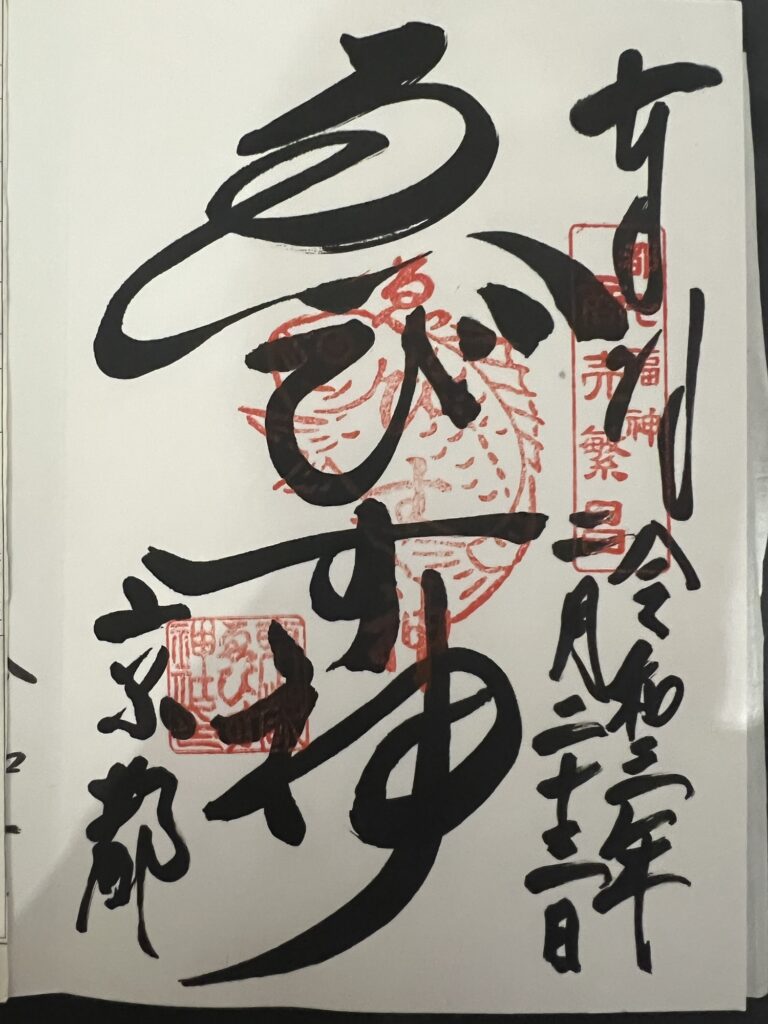 奉拝
都七福神
商売繁昌
令和三年
二月二十三日
ゑびす神
ゑびす神
京都